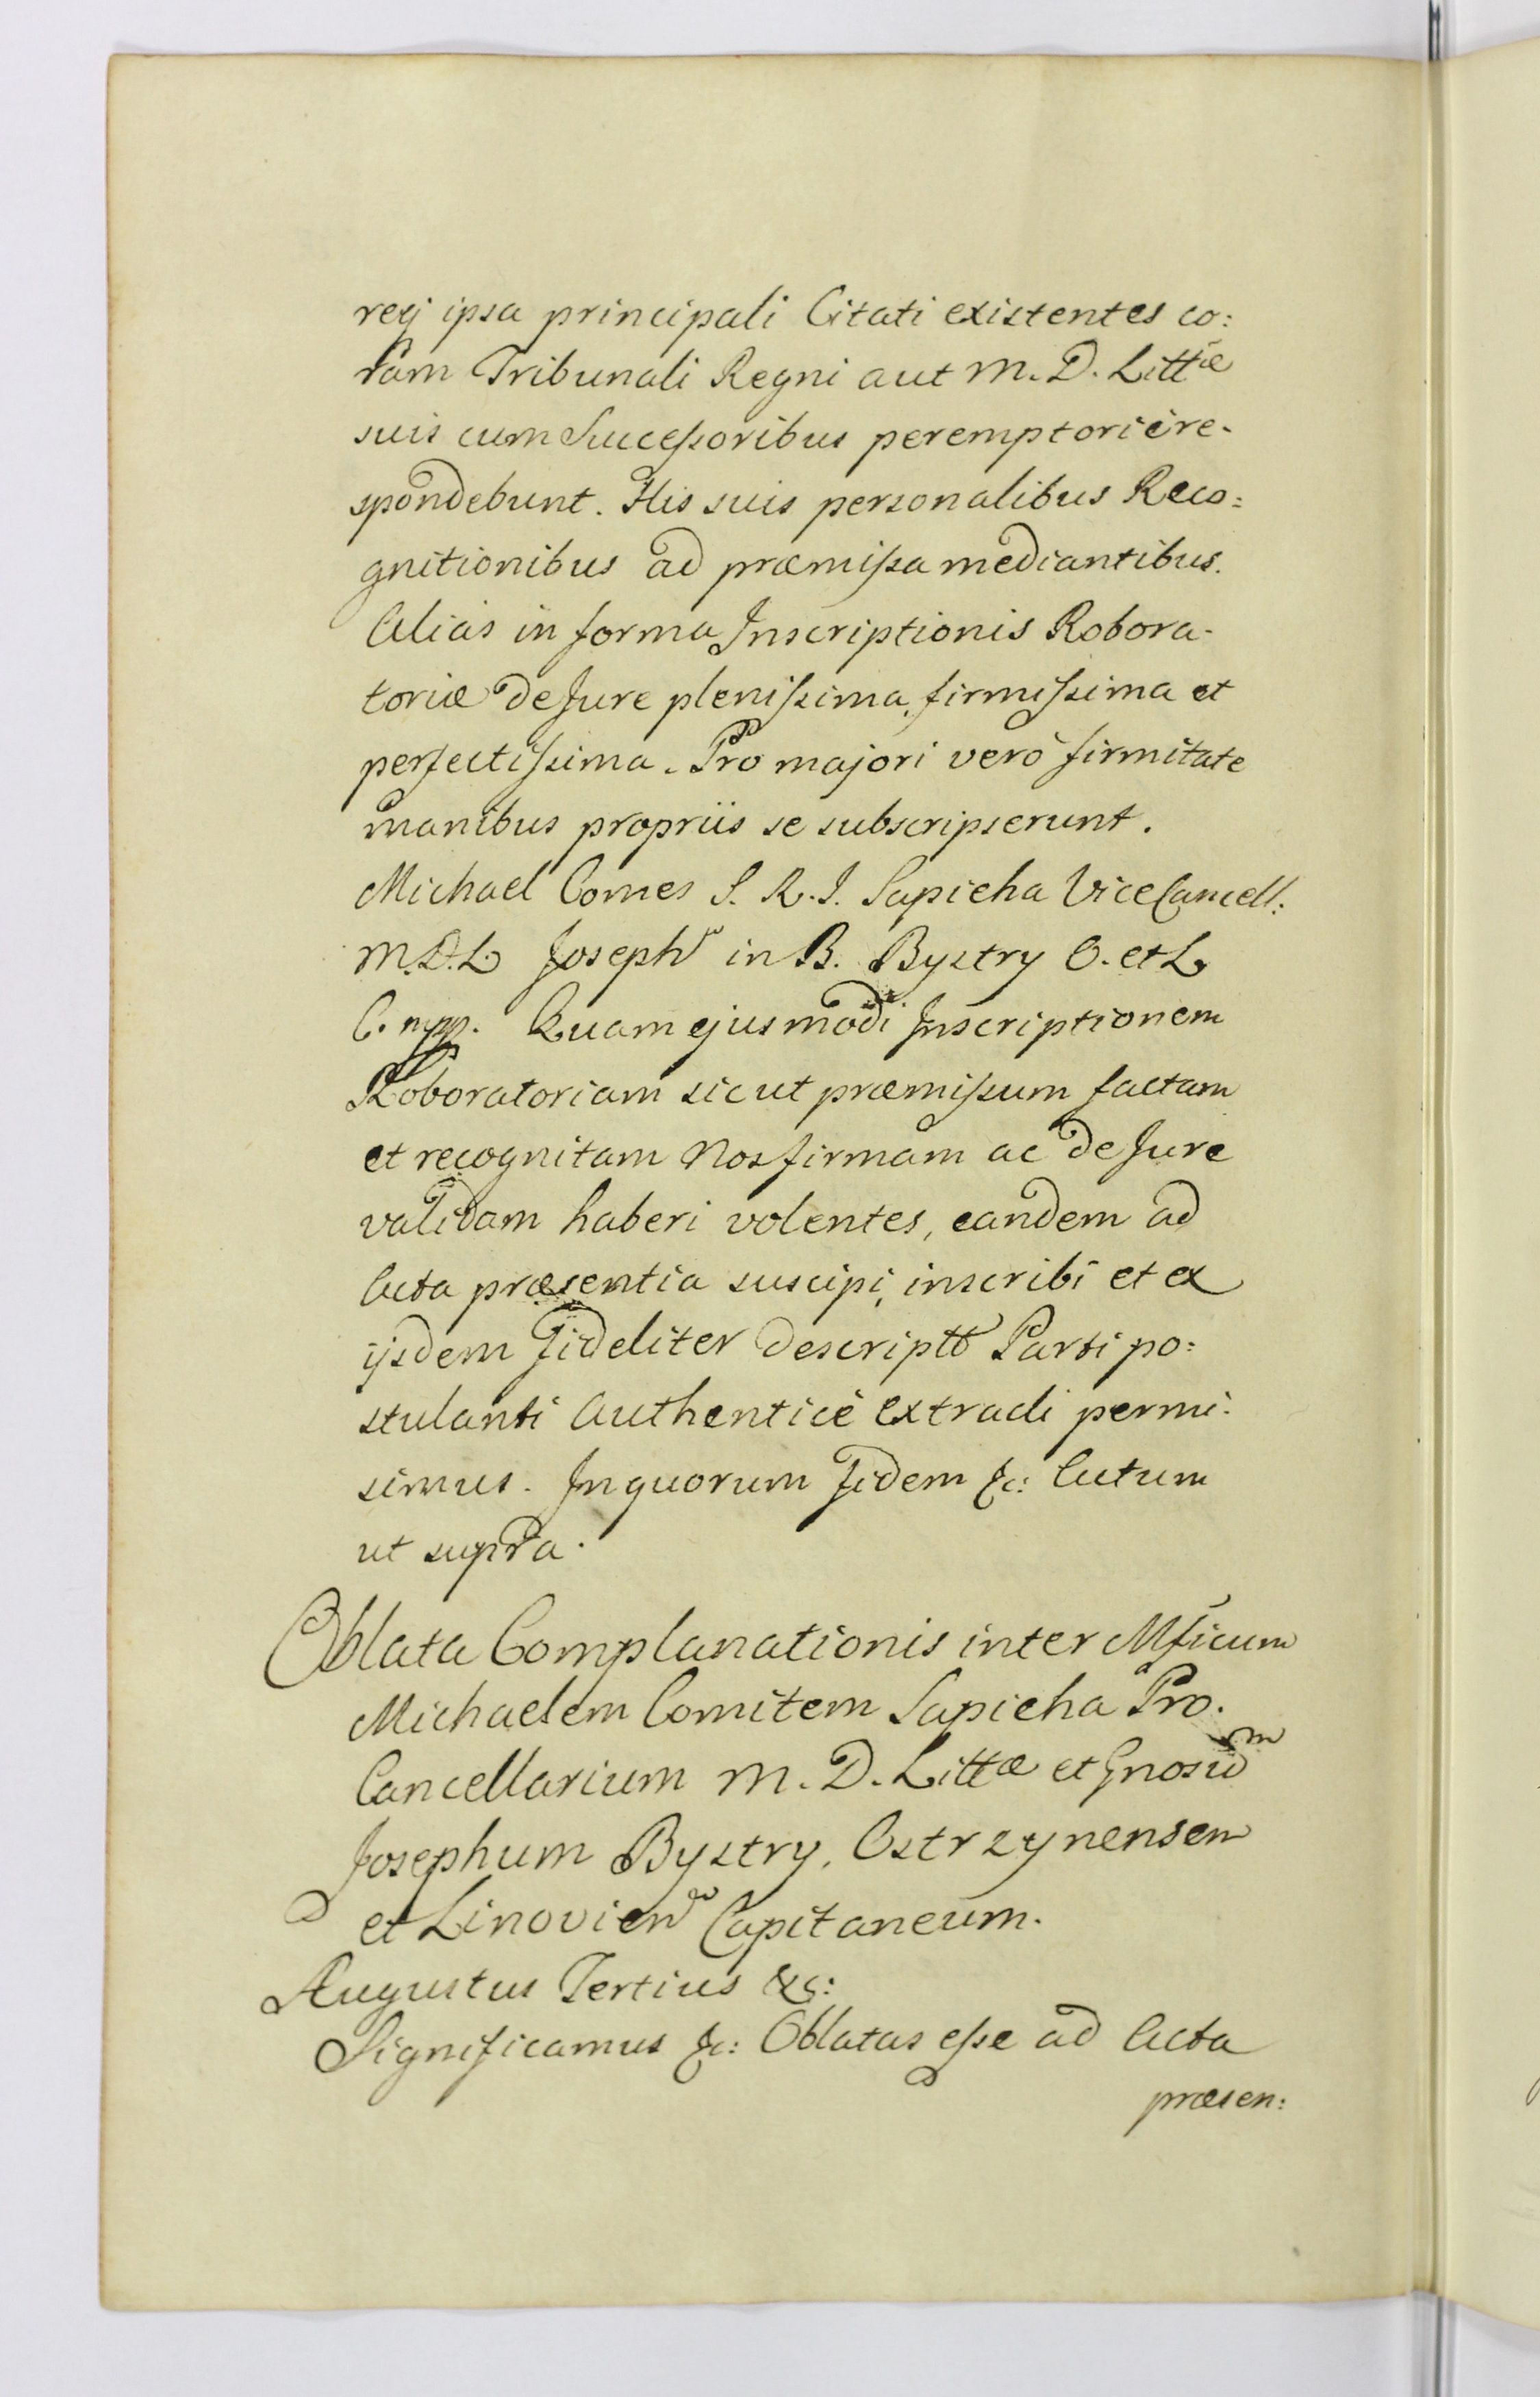 reij ipsa principali Citati existentes co:
ram Tribunali Regni aut M. D. Littæ
suis cum Successoribus peremptoriè re-
spondebunt. His suis personalibus Reco:
gnitionibus ad præmissa mediantibus.
Alias in forma Inscriptionis Robora-
toriæ de Jure plenissima, firmissima et
perfectissima. Pro majori verò firmitate
manibus propriis se subscripserunt.
Michael Comes S. R. I. Sapieha ViceCancell:
M.D.L. Joseph in B. Bystry O. et L.
C. mpp. Quam ejusmodi Inscriptionem
Roboratoriam sicut præmissum factam
et recognitam Nos firmam ac de Jure
validam haberi volentes, eandem ad
Acta præsentia suscipi, inscribi et ex
ijsdem Fideliter descriptt Parti po:
stulanti Authenticè extradi permi:
simus. In quorum Fidem &c: Actum
ut supra.
Oblata Complanationis inter Mficum
Michaelem Comitem Sapieha Pro.
Cancellarium M. D. Littæ et Gnosum
Josephum Bystry, Ostrzynensem
et Linovien Capitaneum.
Augustus Tertius &c:
Significamus &c: Oblatas esse ad Acta
præsen: